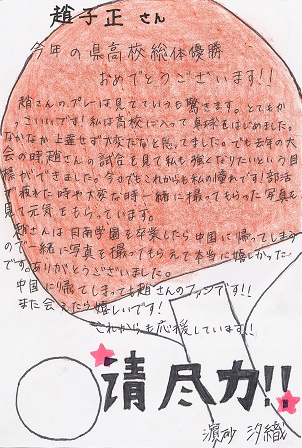 趙子正 さん
今年の県高校総体優勝
おめでとうございます!!
趙さんのプレーは見ていていつも驚きます。とてもか
っこいいです!私は高校に入って卓球をはじめました。
なかなか上達せず大変だなと思ってました。でも去年の大
会の時趙さんの試合を見て私も強くなりたいという目
標ができました。今までもこれからも私の憧れです!部活
で疲れた時や大変な時一緒に撮ってもらった写真を
見て元気をもらっています。
趙さんは日南学園を卒業したら中国に帰ってしまう
ので一緒に写真を撮ってもらえて本当に嬉しかった
です。ありがとうございました。
中国に帰ってしまっても趙さんのファンです!!
また会えたら嬉しいです!
これからも応援しています!!
请尽力!!
濵砂 汐織